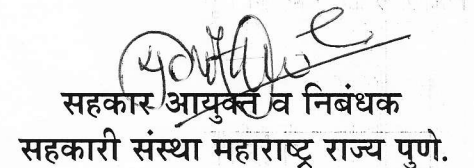 सहकार आयुक्त व निबंधक
सहकारी संस्था महाराष्ट्र राज्य पुणे.